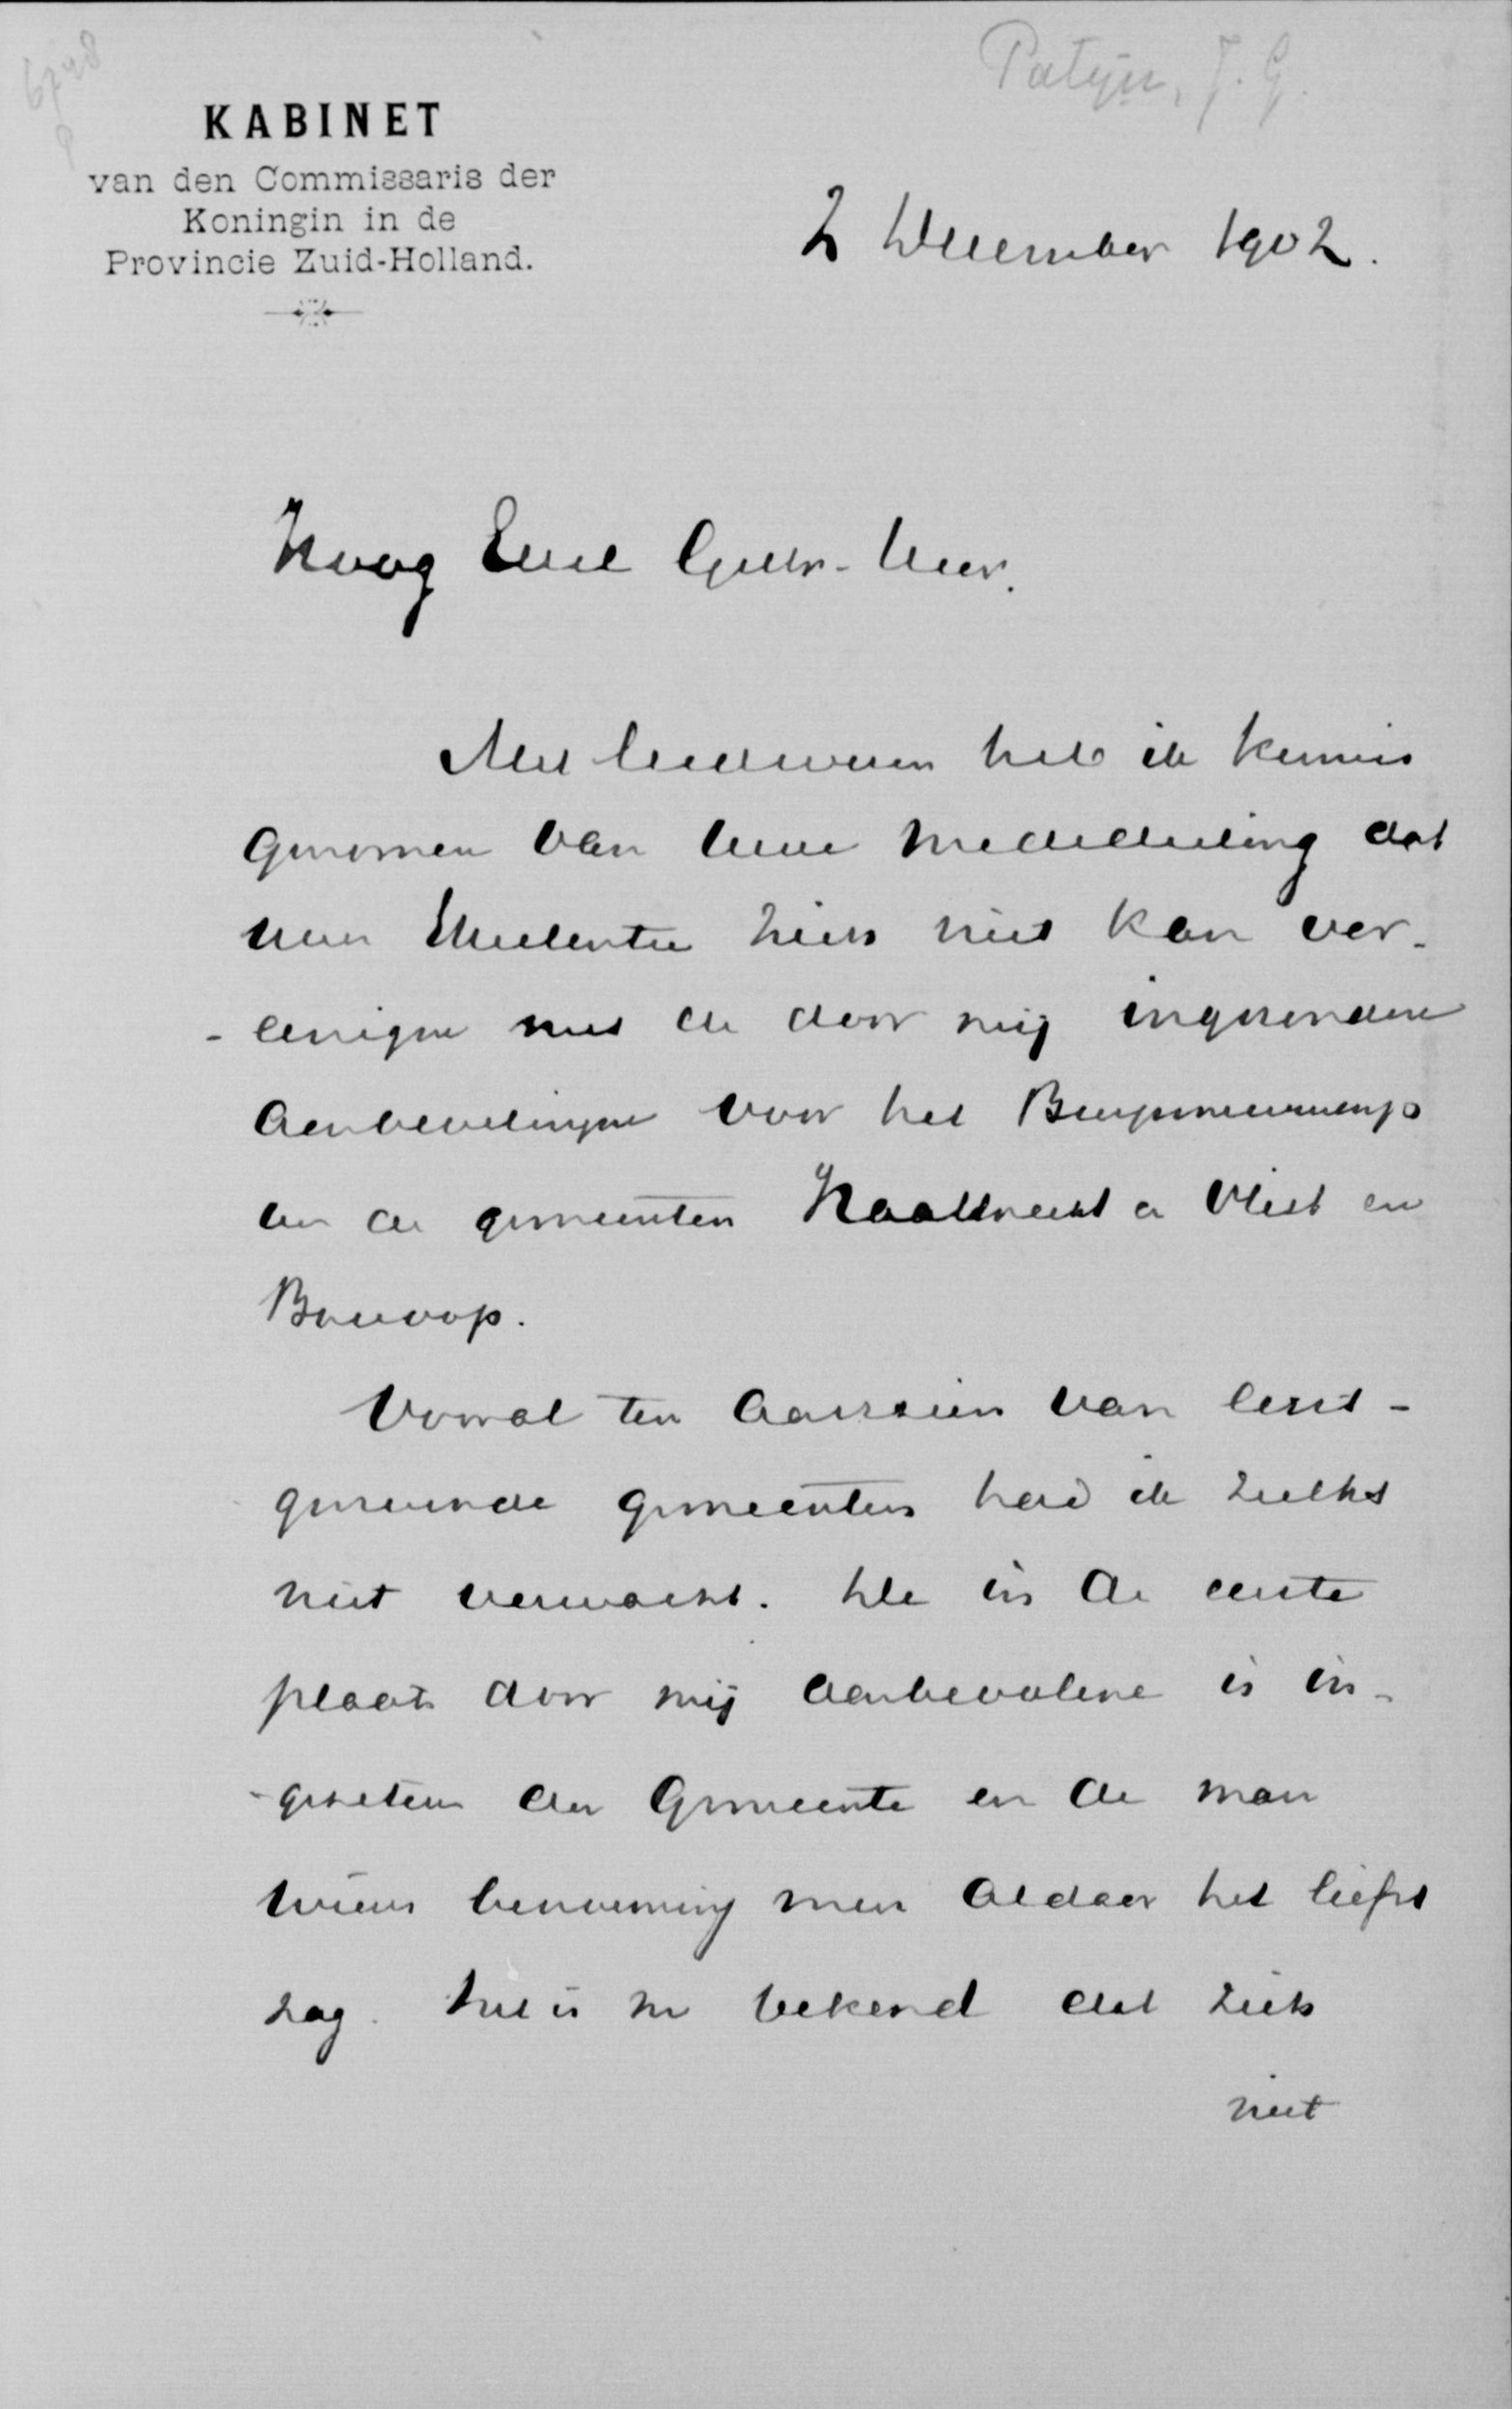 Patijn, J. G.
6748
KABINET
van den Commissaris der
Koningin in de
Provincie Zuid-Holland.
2 December 1902.
Hoog Edel Gestr. Heer.
Met leedwezen heb ik kennis
genomen van Uwe mededeeling dat
Uwe Excellentie zich niet kan ver-
-eenigen met de door mij ingezonden
aanbevelingen voor het Burgemeestersch.
in de gemeenten Haastrecht a Vlist en
Boscoop.
Vooral ten aanzien van eerst-
genoemde gemeenten had ik zulks
niet verwacht. De in de eerste
plaats door mij aanbevolene is in-
-gezeten der Gemeente en de man
wiens benoeming men aldaar het liefst
zag. Het is mij bekend dat zich
niet